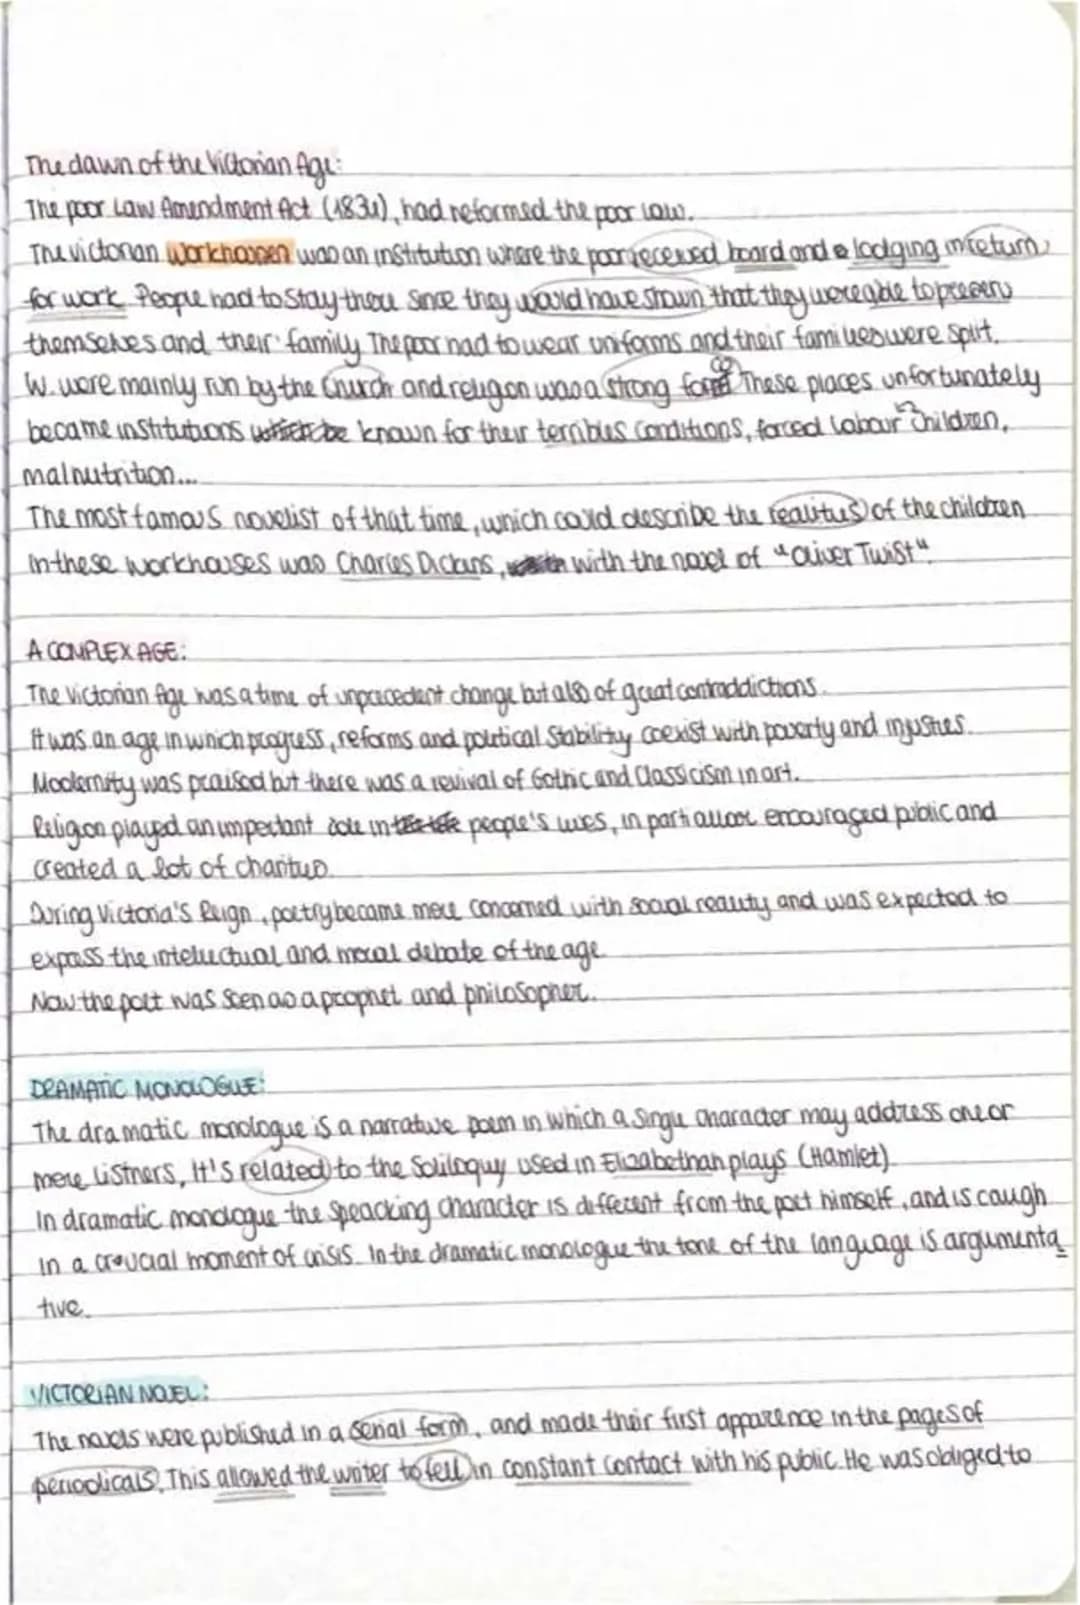 The dawn of the Victorian Age:
The poor Law Amendment Act (1834), had reformed the poor law.
The victorian workhousen was an institution where the poor received board and a lodging in return
for work. People had to stay there since they would have shown that they were able to preserv
themselves and their family. The poor had to wear uniforms and their families were split.
W. were mainly run by the Church and religion was a strong force These places unfortunately
became institutions which be known for their terribles conditions, forced labour children,
malnutrition...
The most famous novelist of that time, which could describe the realitys of the children
In these workhouses was Charles Dickens, with with the novel of "Oliver Twist"
A COMPLEX AGE:
The Victorian Age was a time of unprecedent change but also of great contraddictions.
It was an age in which progress, reforms and political stability coexist with poverty and injustes.
Modernity was praised but there was a revival of Gothic and Classicism in art.
Religion played an important role in people's lives, in particular encouraged public and
created a lot of charitys.
During Victoria's Reign, poetry became more concerned with social reality and was expected to
express the intellectual and moral debate of the age.
Now the poet was seen as a prophet and philosopher.
DRAMATIC MONOLOGUE:
The dramatic monologue is a narrative poem in which a single character may address one or
more listners, It's related to the Soliloquy used in Elizabethan plays (Hamlet).
In dramatic monologue the speacking character is different from the poet himself, and is caugh
In a croucial moment of crisis. In the dramatic monologue the tone of the language is argumenta
tive.
VICTORIAN NOVEL:
The novels were published in a serial form, and made their first apparence in the pages of
periodicals. This allowed the writer to fell in constant contact with his public. He was obliged to